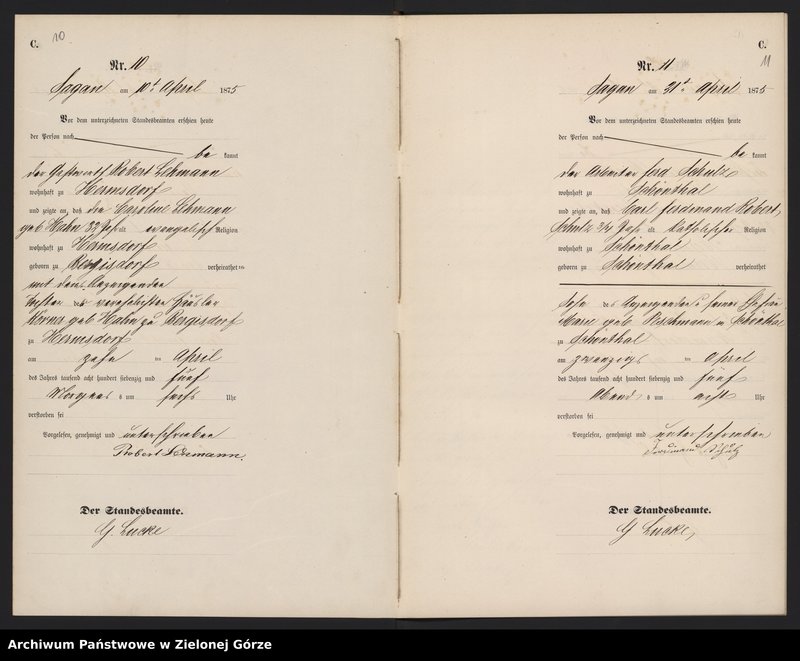 C.
10
Nr. 10
Sagan am 10t April 1875
Vor dem unterzeichneten Standesbeamten erschien heute
der Person nach
be kannt
der Gastwirth Robert Lehmann
wohnhaft zu Hermsdorf
und zeigte an, daß die Caroline Lehmann
geb Hahn 32 Jahr alt evangelisch Religion
wohnhaft zu Hermsdorf
geboren zu Bergisdorf verheirathet
mit dem Anzeigenden
Tochter der verehelichten Häusler
Körner geb Hahn zu Bergisdorf
zu Hermsdorf
am zehn ten April
des Jahres tausend acht hundert siebenzig und fünf
Morgens um sechs Uhr
verstorben sei
Vorgelesen, genehmigt und unterschrieben
Robert Lehmann.
Der Standesbeamte.
G. Lucke
C.
11
Nr. 11
Sagan am April 1875
Vor dem unterzeichneten Standesbeamten erschien heute
der Person nach
be kannt
der Arbeiter Ferd Schulz
wohnhaft zu Schönthal
und zeigte an, daß Carl Ferdinand Robert
Schulz 3/4 Jahr alt katholischer Religion
wohnhaft zu Schönthal
geboren zu Schönthal verheirathet
Sohn des Anzeigenden u seiner Ehefrau
Marie geb zu Schönthal
zu Schönthal
am zwanzigs ten April
des Jahres tausend acht hundert siebenzig und fünf
Abends um acht Uhr
verstorben sei
Vorgelesen, genehmigt und unterschrieben
Ferdinand Schulz
Der Standesbeamte.
G Lucke
Archiwum Państwowe w Zielonej Górze